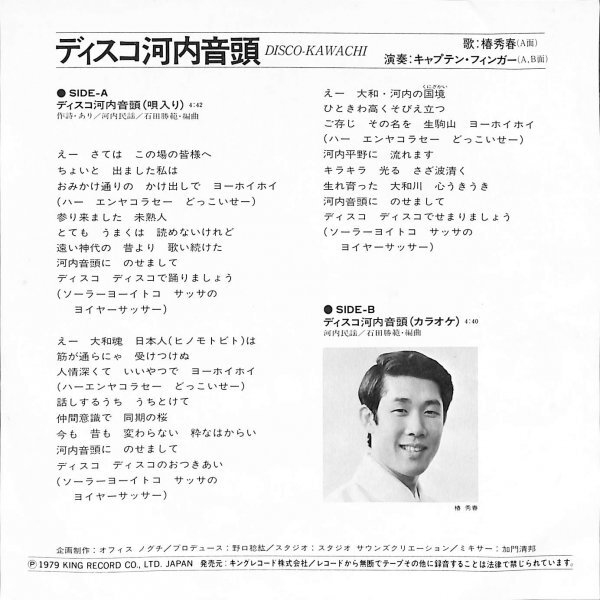 ディスコ河内音頭 DISCO-KAWACHI
歌:椿秀春(A面)
演奏:キャプテン・フィンガー(A,B面)
● SIDE-A
ディスコ河内音頭(唄入り) 4:42
作詩・あり/河内民謡/石田勝範・編曲
えー さては この場の皆様へ
ちょいと 出ました私は
おみかけ通りの かけ出しで ヨーホイホイ
(ハー エンヤコラセー どっこいせー)
参り来ました 未熟人
とても うまくは 読めないけれど
遠い神代の 昔より 歌い続けた
河内音頭に のせまして
ディスコ ディスコで踊りましょう
(ソーラーヨーイトコ サッサの
ヨイヤーサッサー)
えー 大和魂 日本人(ヒノモトビト)は
筋が通らにゃ 受けつけぬ
人情深くて いいやつで ヨーホイホイ
(ハーエンヤコラセー どっこいせー)
話しするうち うちとけて
仲間意識で 同期の桜
今も 昔も 変わらない 粋なはからい
河内音頭に のせまして
ディスコ ディスコのおつきあい
(ソーラーヨーイトコ サッサの
ヨイヤーサッサー)
えー 大和・河内の国境
くにざかい
ひときわ高くそびえ立つ
ご存じ その名を 生駒山 ヨーホイホイ
(ハー エンヤコラセー どっこいせー)
河内平野に 流れます
キラキラ 光る さざ波清く
生れ育った 大和川 心うきうき
河内音頭に のせまして
ディスコ ディスコでせまりましょう
(ソーラーヨーイトコ サッサの
ヨイヤーサッサー)
● SIDE-B
ディスコ河内音頭(カラオケ) 4:40
河内民謡/石田勝範・編曲
椿 秀春
企画制作:オフィス ノグチ/プロデュース:野口稔紘/スタジオ:スタジオ サウンズクリエーション/ミキサー:加門清邦
Ⓟ 1979 KING RECORD CO., LTD. JAPAN 発売元:キングレコード株式会社/レコードから無断でテープその他に録音することは法律で禁じられています。